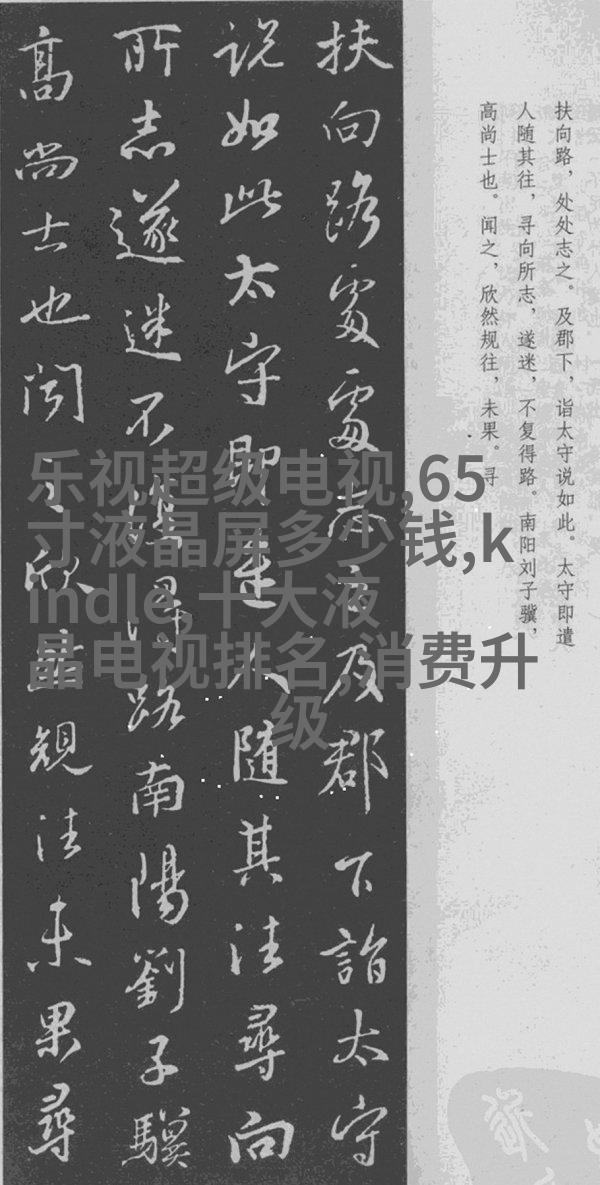 扶向路，处处志之。及郡下，诣太守说如此。太守即遣
人随其往，寻向所志，遂迷，不复得路。南阳刘子骥，
高尚士也。闻之，欣然规往，未果。寻
扶向路處處志之及郡下詣太守
説如此太守即遣人隨其往尋向
所志遂迷不復得路南陽劉子驥
高尚士也聞之欣然規往未果尋
乐视超级电视,65
寸液晶屏多少钱,k
indle,十大液
晶电视排名,消费升
级